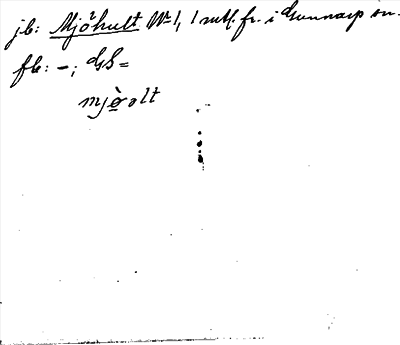 jb: Mjöhult No 1, 1 mtl. fr. i Gunnarp sn.
fb: –; GS =
mjò̱olt